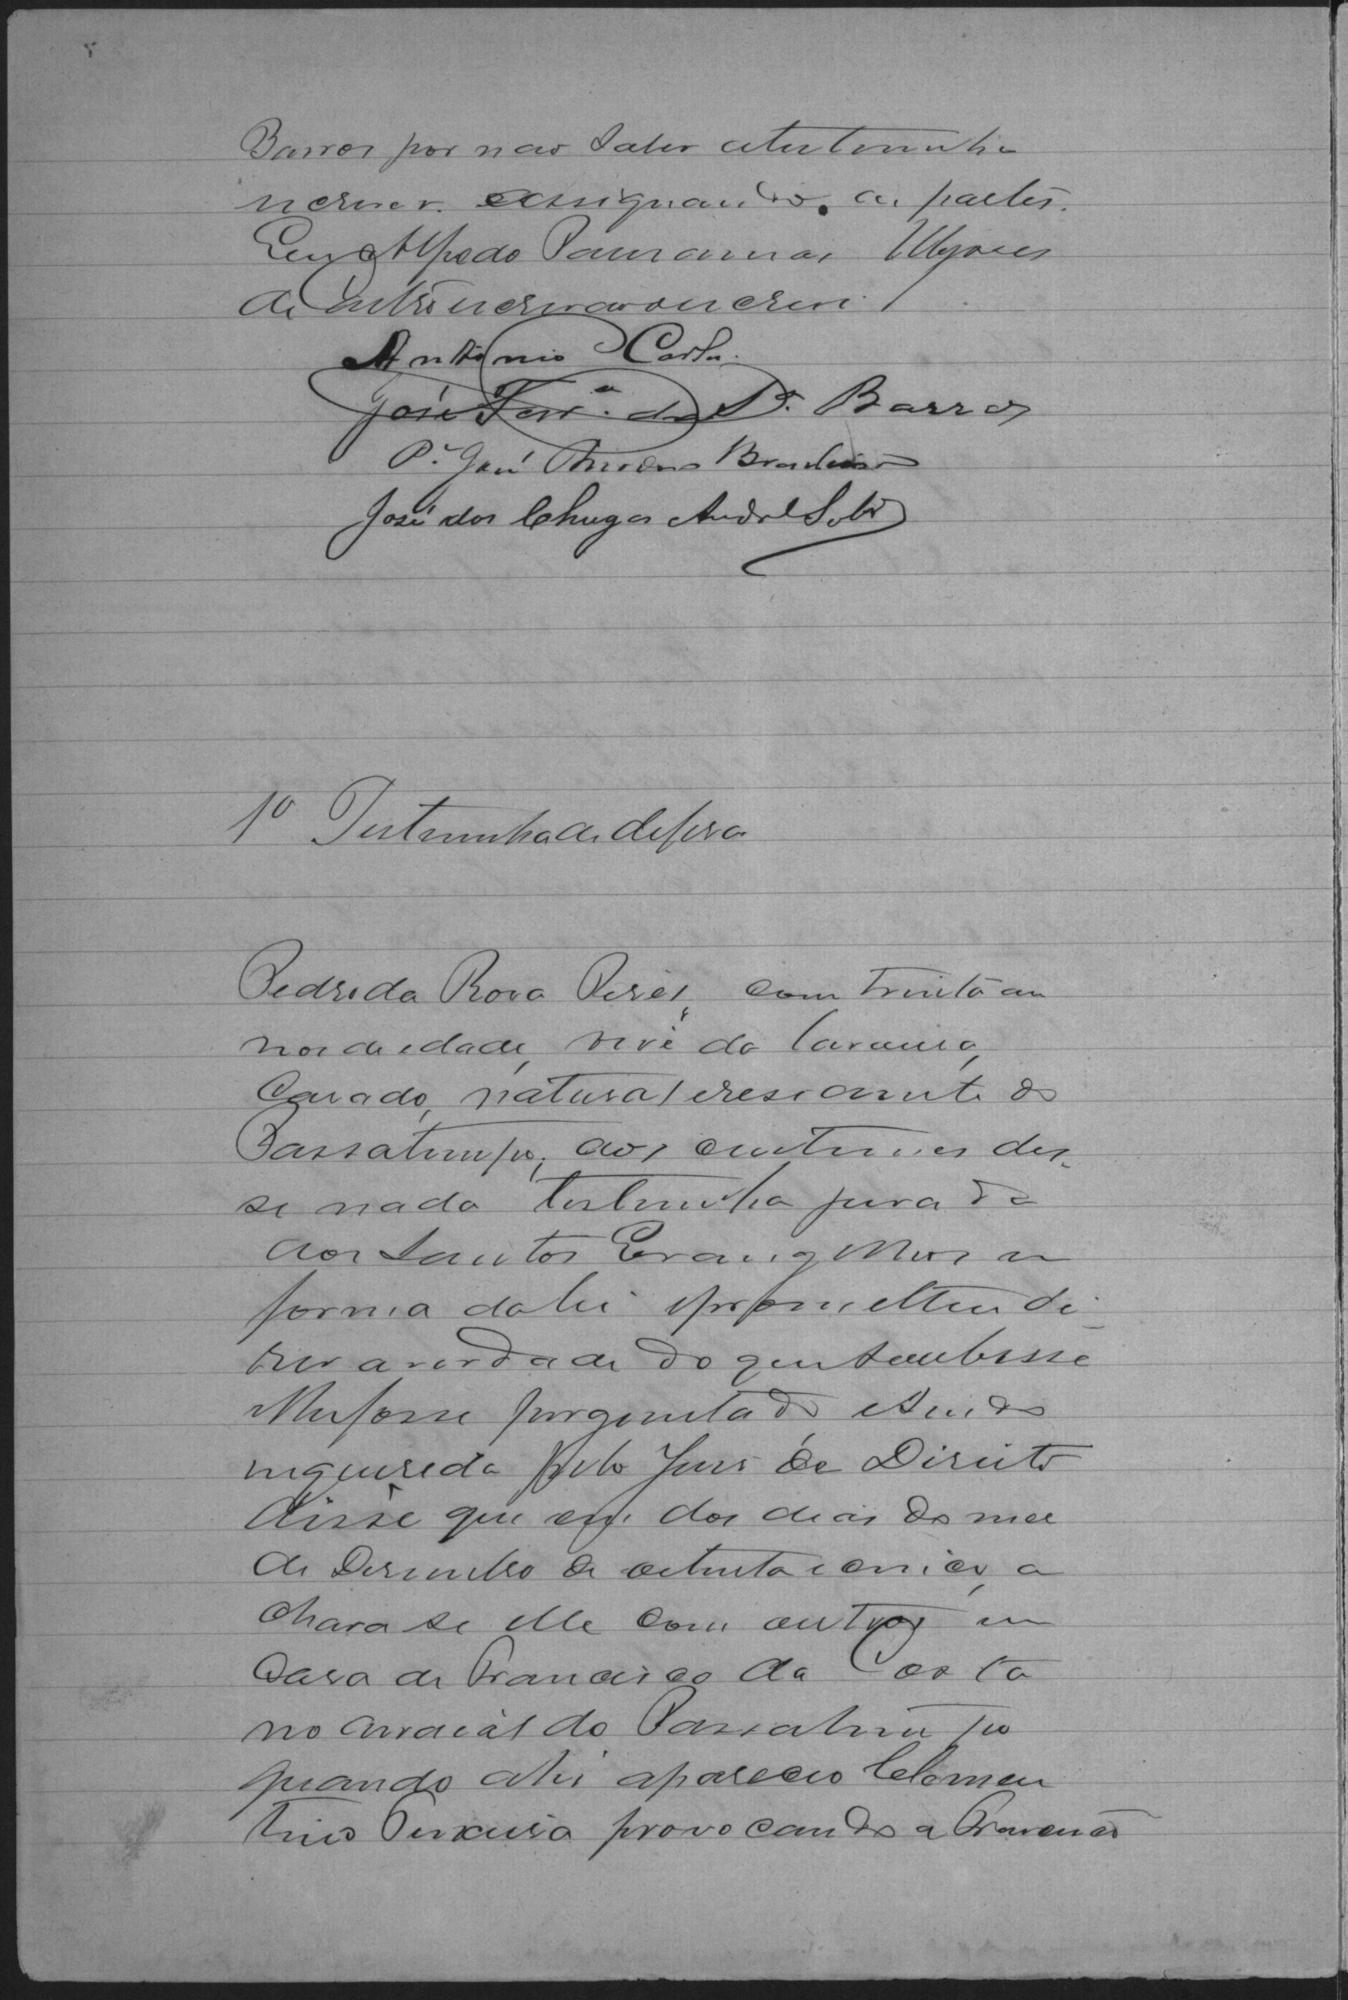 Barros por não saber atestemunha
escrever. assignando. as partes.
Eu Alfredo Ulysses
de Castro escrivão escrevi.
Antonio Carlos
José Ferrª. de P. Barros
Pᵉ José Brasileiro
José das Chagas Andrade Sobrº
1º Testemunha de defesa
Pedro da Roza Pires, com trinta an
nos de edade, vive da lavoura,
Casado, natural eresidente do
Passatempo, aos custumes dis-
se nada testemunha jurada
aos Santos Evangelhos em
forma da lei eprometteu di-
zer averdade do que soubesse
elhefosse perguntado esendo
inquerida pelo Juis de Direito
disse que em dos dias do mez
de Desembro de oitenta e cinco, a
chava se elle com outros em
Casa de Francisco da Costa
no arraial do Passatempo
quando ahi apareceo Clemen
tino Teixeira provocando a